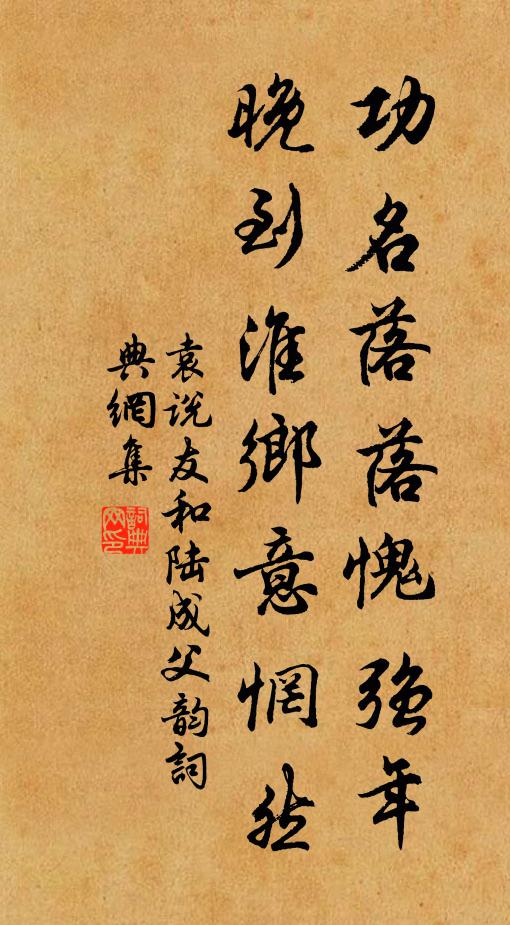 功名落落愧强年
晚到淮鄉意惘然
袁说友和陆成父韵詞
典網集
詞典
网印